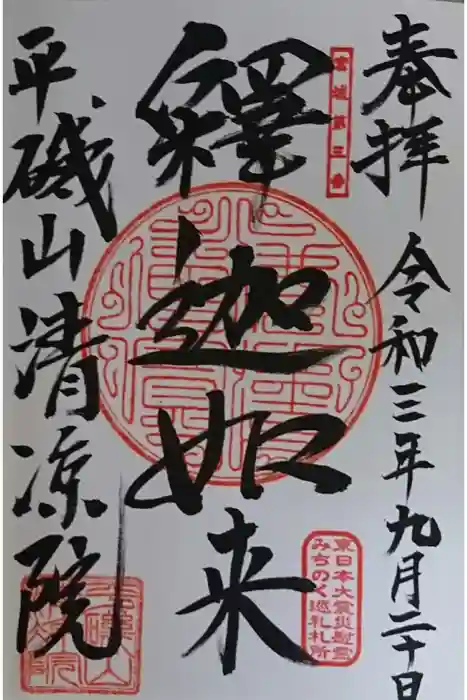 奉拝
令和三年九月二十日
霊場第三番
釋迦如来
東日本大震災慰霊
みちのく巡礼札所
平磯山清凉院